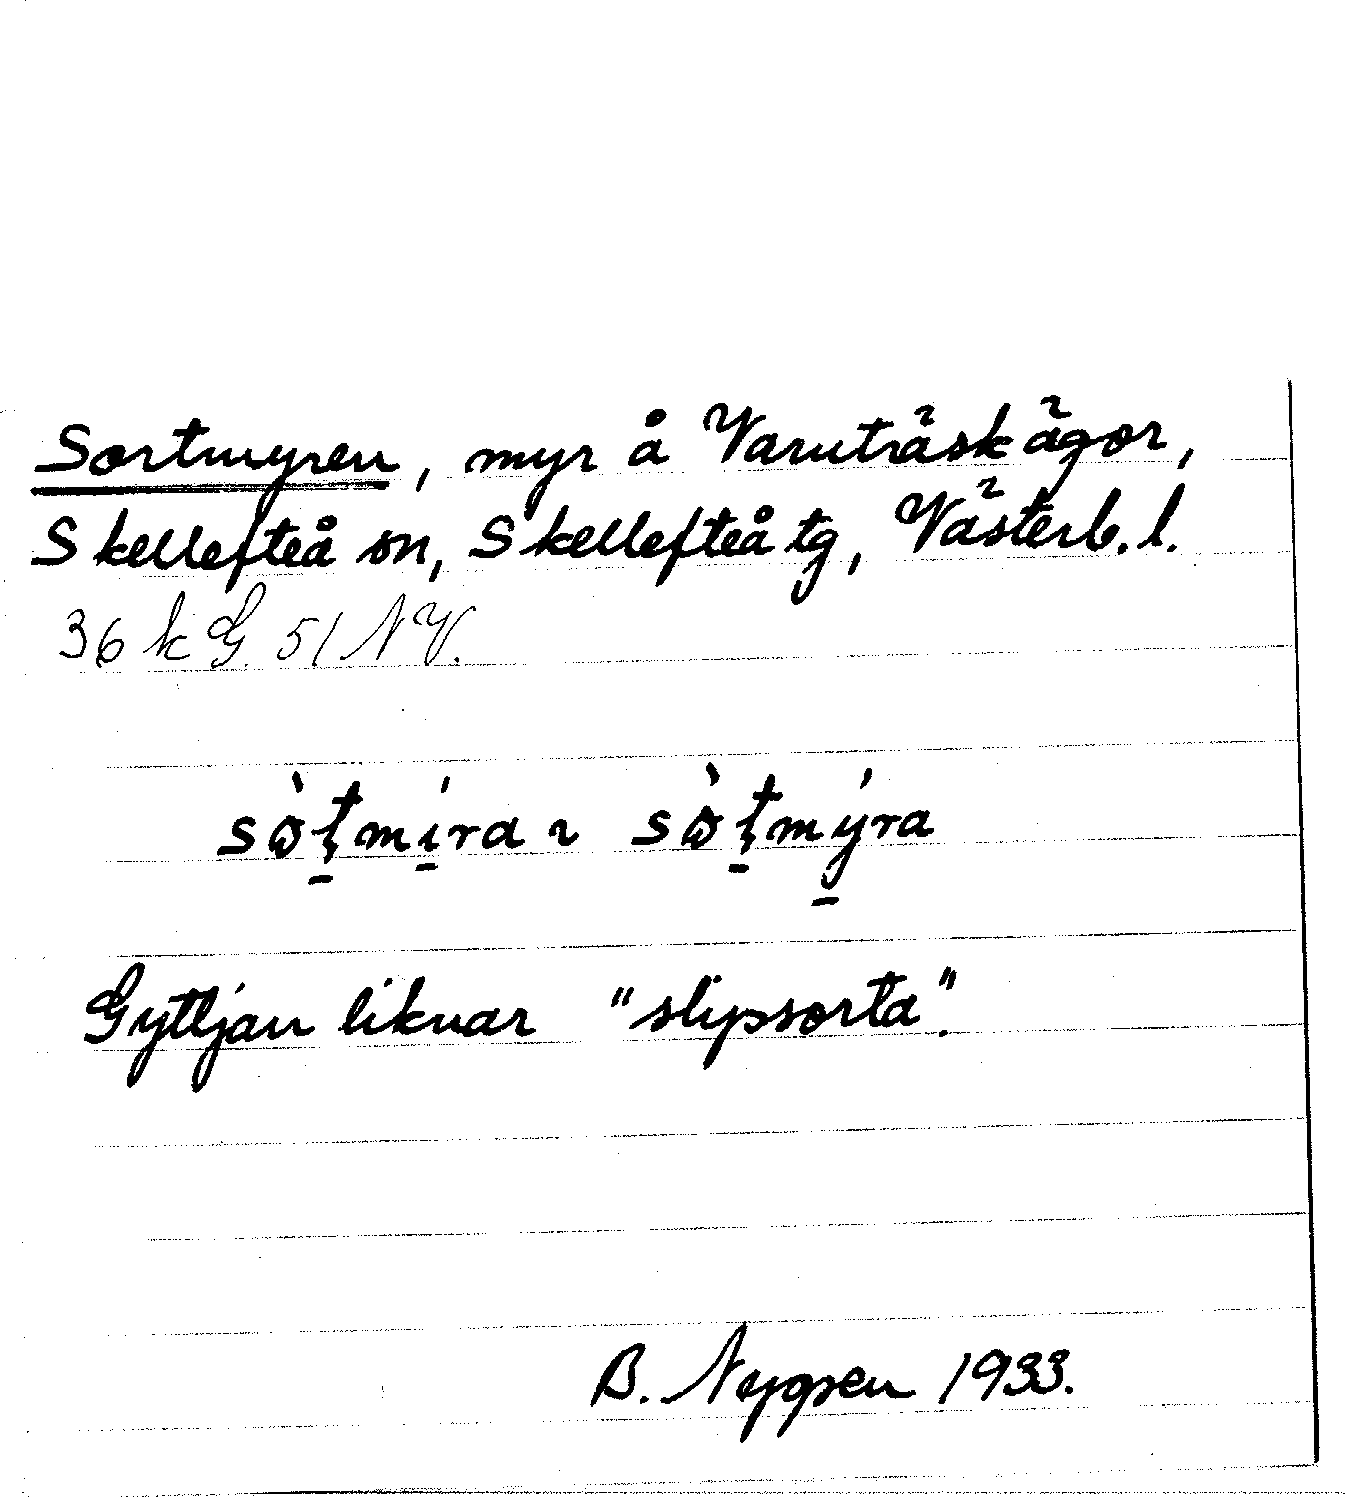 Sortmyren, myr å Varuträskägor,
Skellefteå sn, Skellefteå tg, Västerb. l.
36 k G. 51 NV.
Gyttjan liknar "slipsorta".
B. 1933.